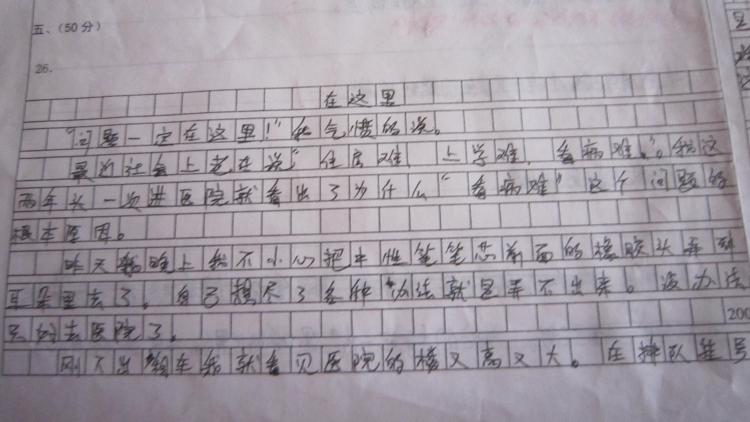 五、(50分)
26.
在这里
“问题一定在这里!”我气愤的说。
最近社会上老在说“住房难,上学难,看病难。”。我这
两年头一次进医院就看出了为什么“看病难”这个问题的
根本原因。
昨天晚上我不小心把中性笔笔芯前面的橡胶头弄到
耳朵里去了。自己想尽了各种办法就是弄不出来。没办法
只好去医院了。
200
刚下出租车我就看见医院的楼又高又大。在排队挂号